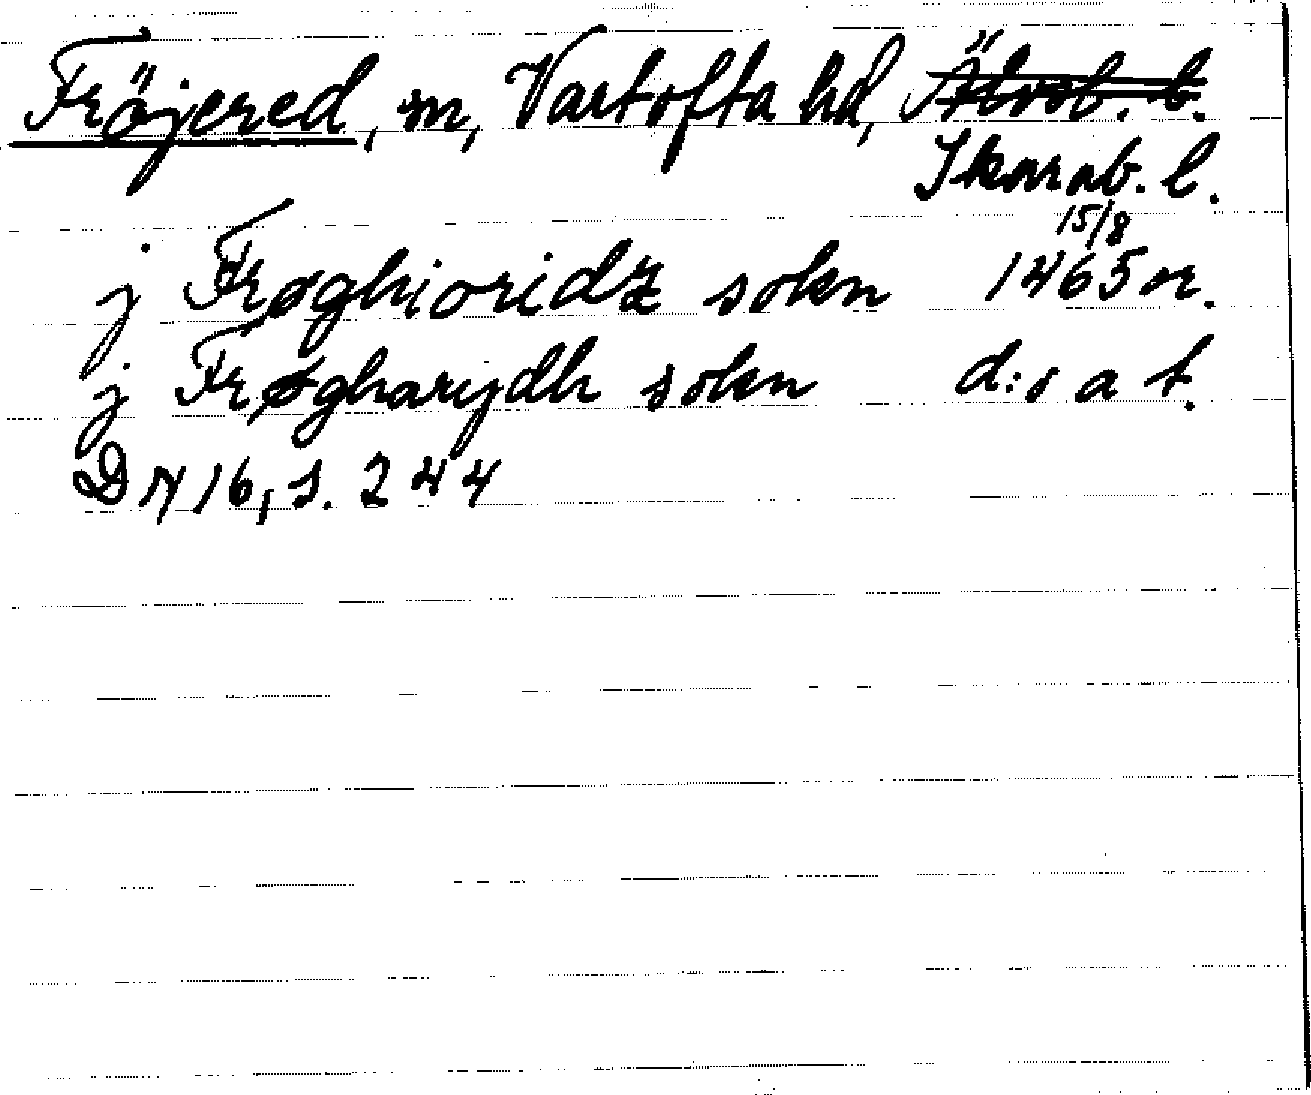 Fröjered, sn, Vartofta hd, Älvsb. l.
Skarab. l.
15/8
j Frøghioridz sokn 1465 or.
j Frøgharydh sokn d:o a t.
DN 16, s. 244